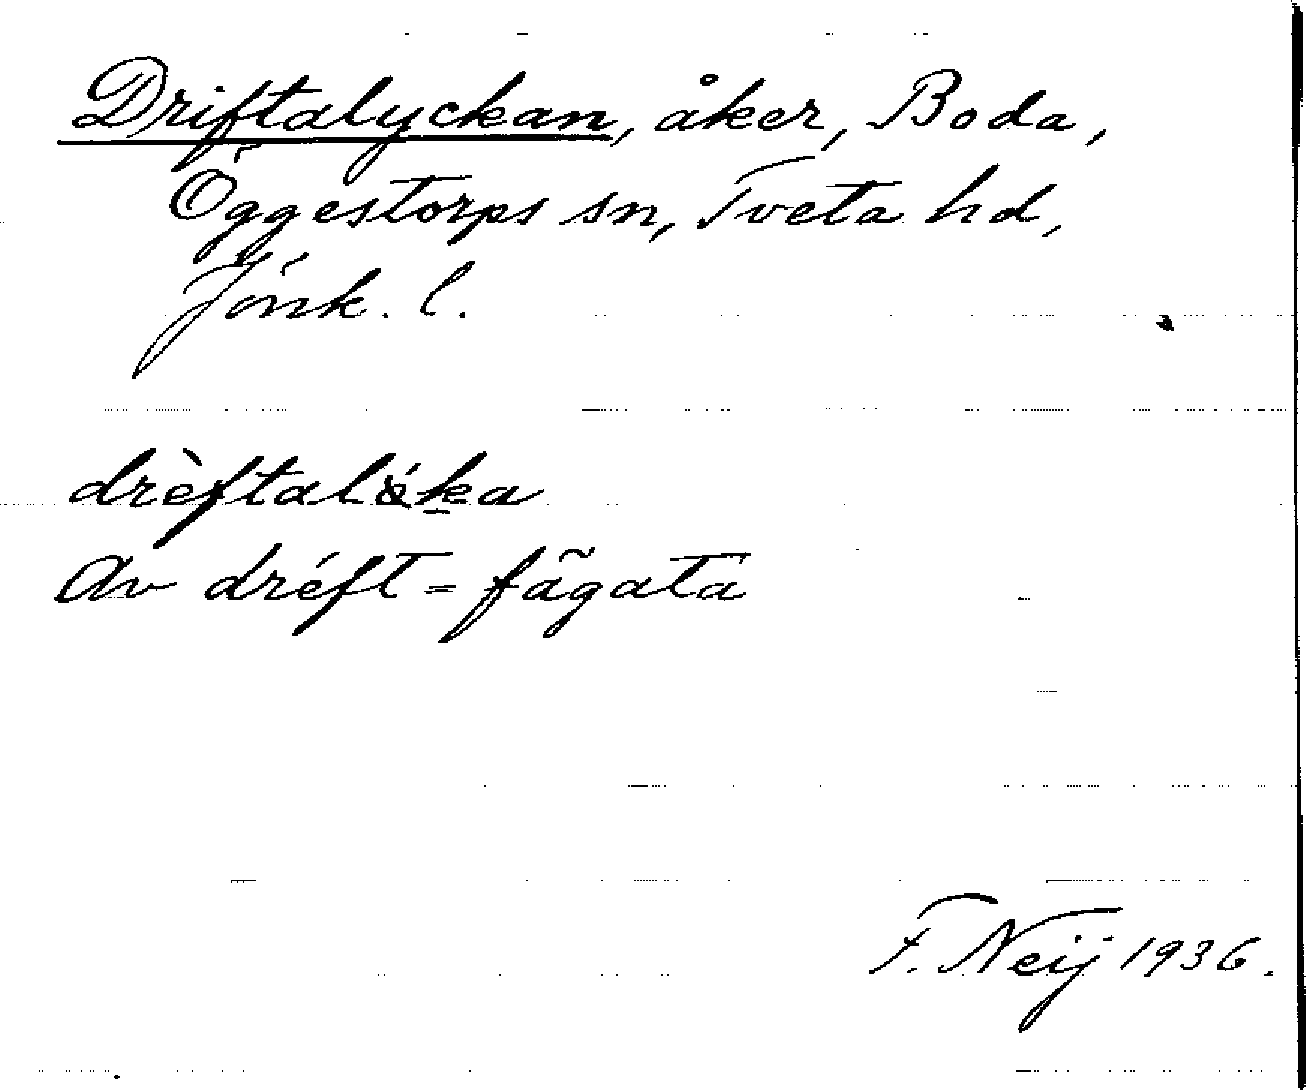 Driftalyckan, åker, Boda,
Öggestorps sn, Tveta hd,
Jönk. l.
drèftalǿka
Av dréft = fägata
F. Neij 1936.